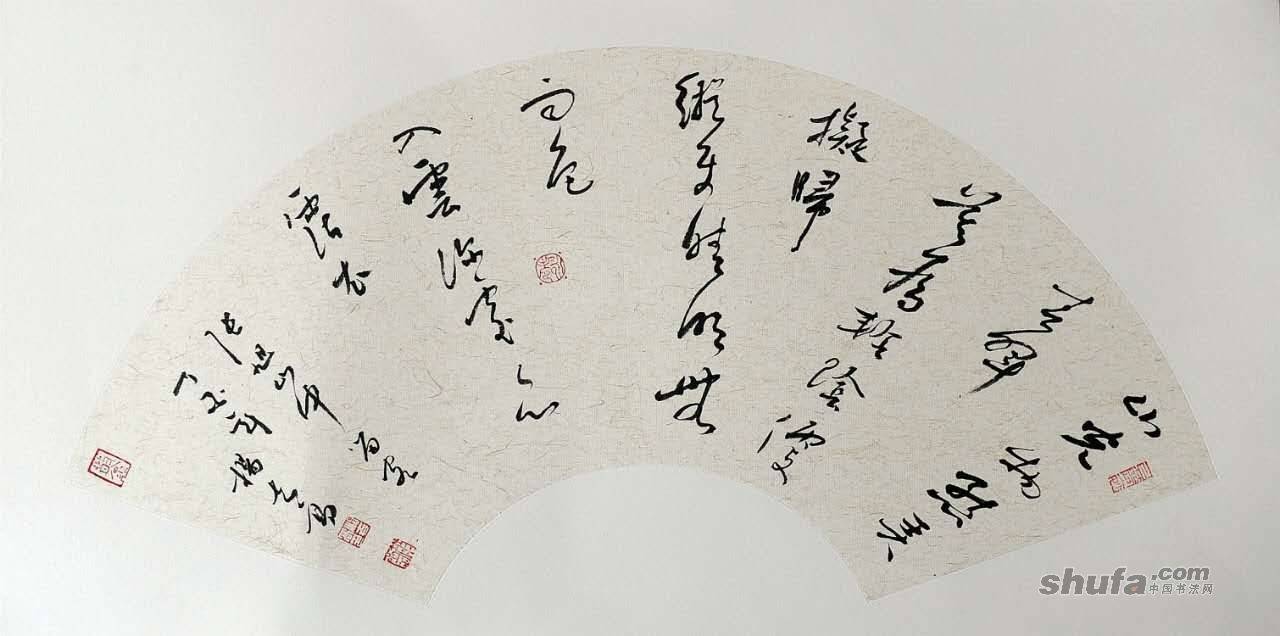 山光物態弄
春暉
莫為輕陰便
擬歸
縱使晴明無
雨色
入雲深處亦
霑衣
張旭山中留客
丁酉 楊
shufa.com
中国书法网